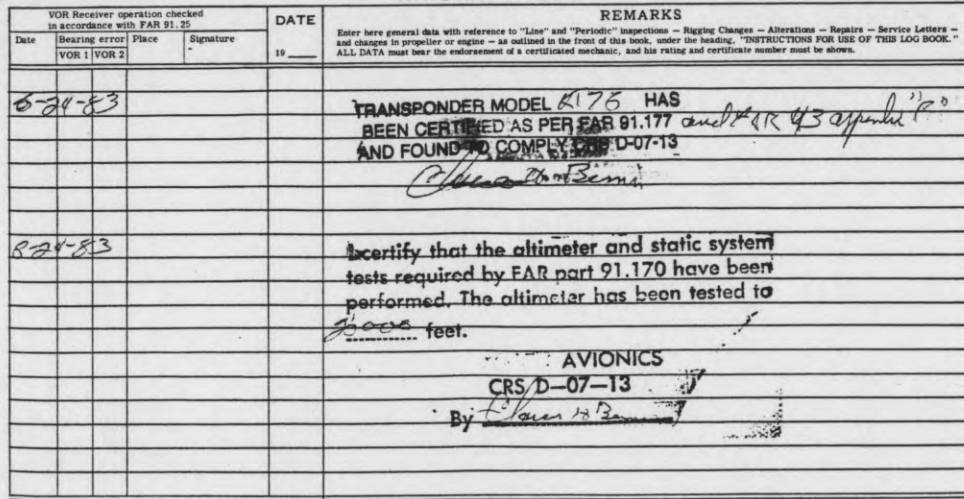 VOR Receiver operation checked
in accordance with FAR 91.25
Date Bearing error Place Signature
VOR 1 VOR 2
DATE
19
REMARKS
Enter here general data with reference to "Line" and "Periodic" inspections — Rigging Changes — Alterations — Repairs — Service Letters —
and changes in propeller or engine — as outlined in the front of this book, under the heading, "INSTRUCTIONS FOR USE OF THIS LOG BOOK."
ALL DATA must bear the endorsement of a certificated mechanic, and his rating and certificate number must be shown.
TRANSPONDER MODEL HAS
-24-83
BEEN CERTIFIED AS PER FAR 91.177 and FAR 43
AND FOUND TO COMPLY CRS D-07-13
8-24-83
I certify that the altimeter and static system
tests required by FAR part 91.170 have been
performed. The altimeter has been tested to
feet.
AVIONICS
CRS D-07-13
By